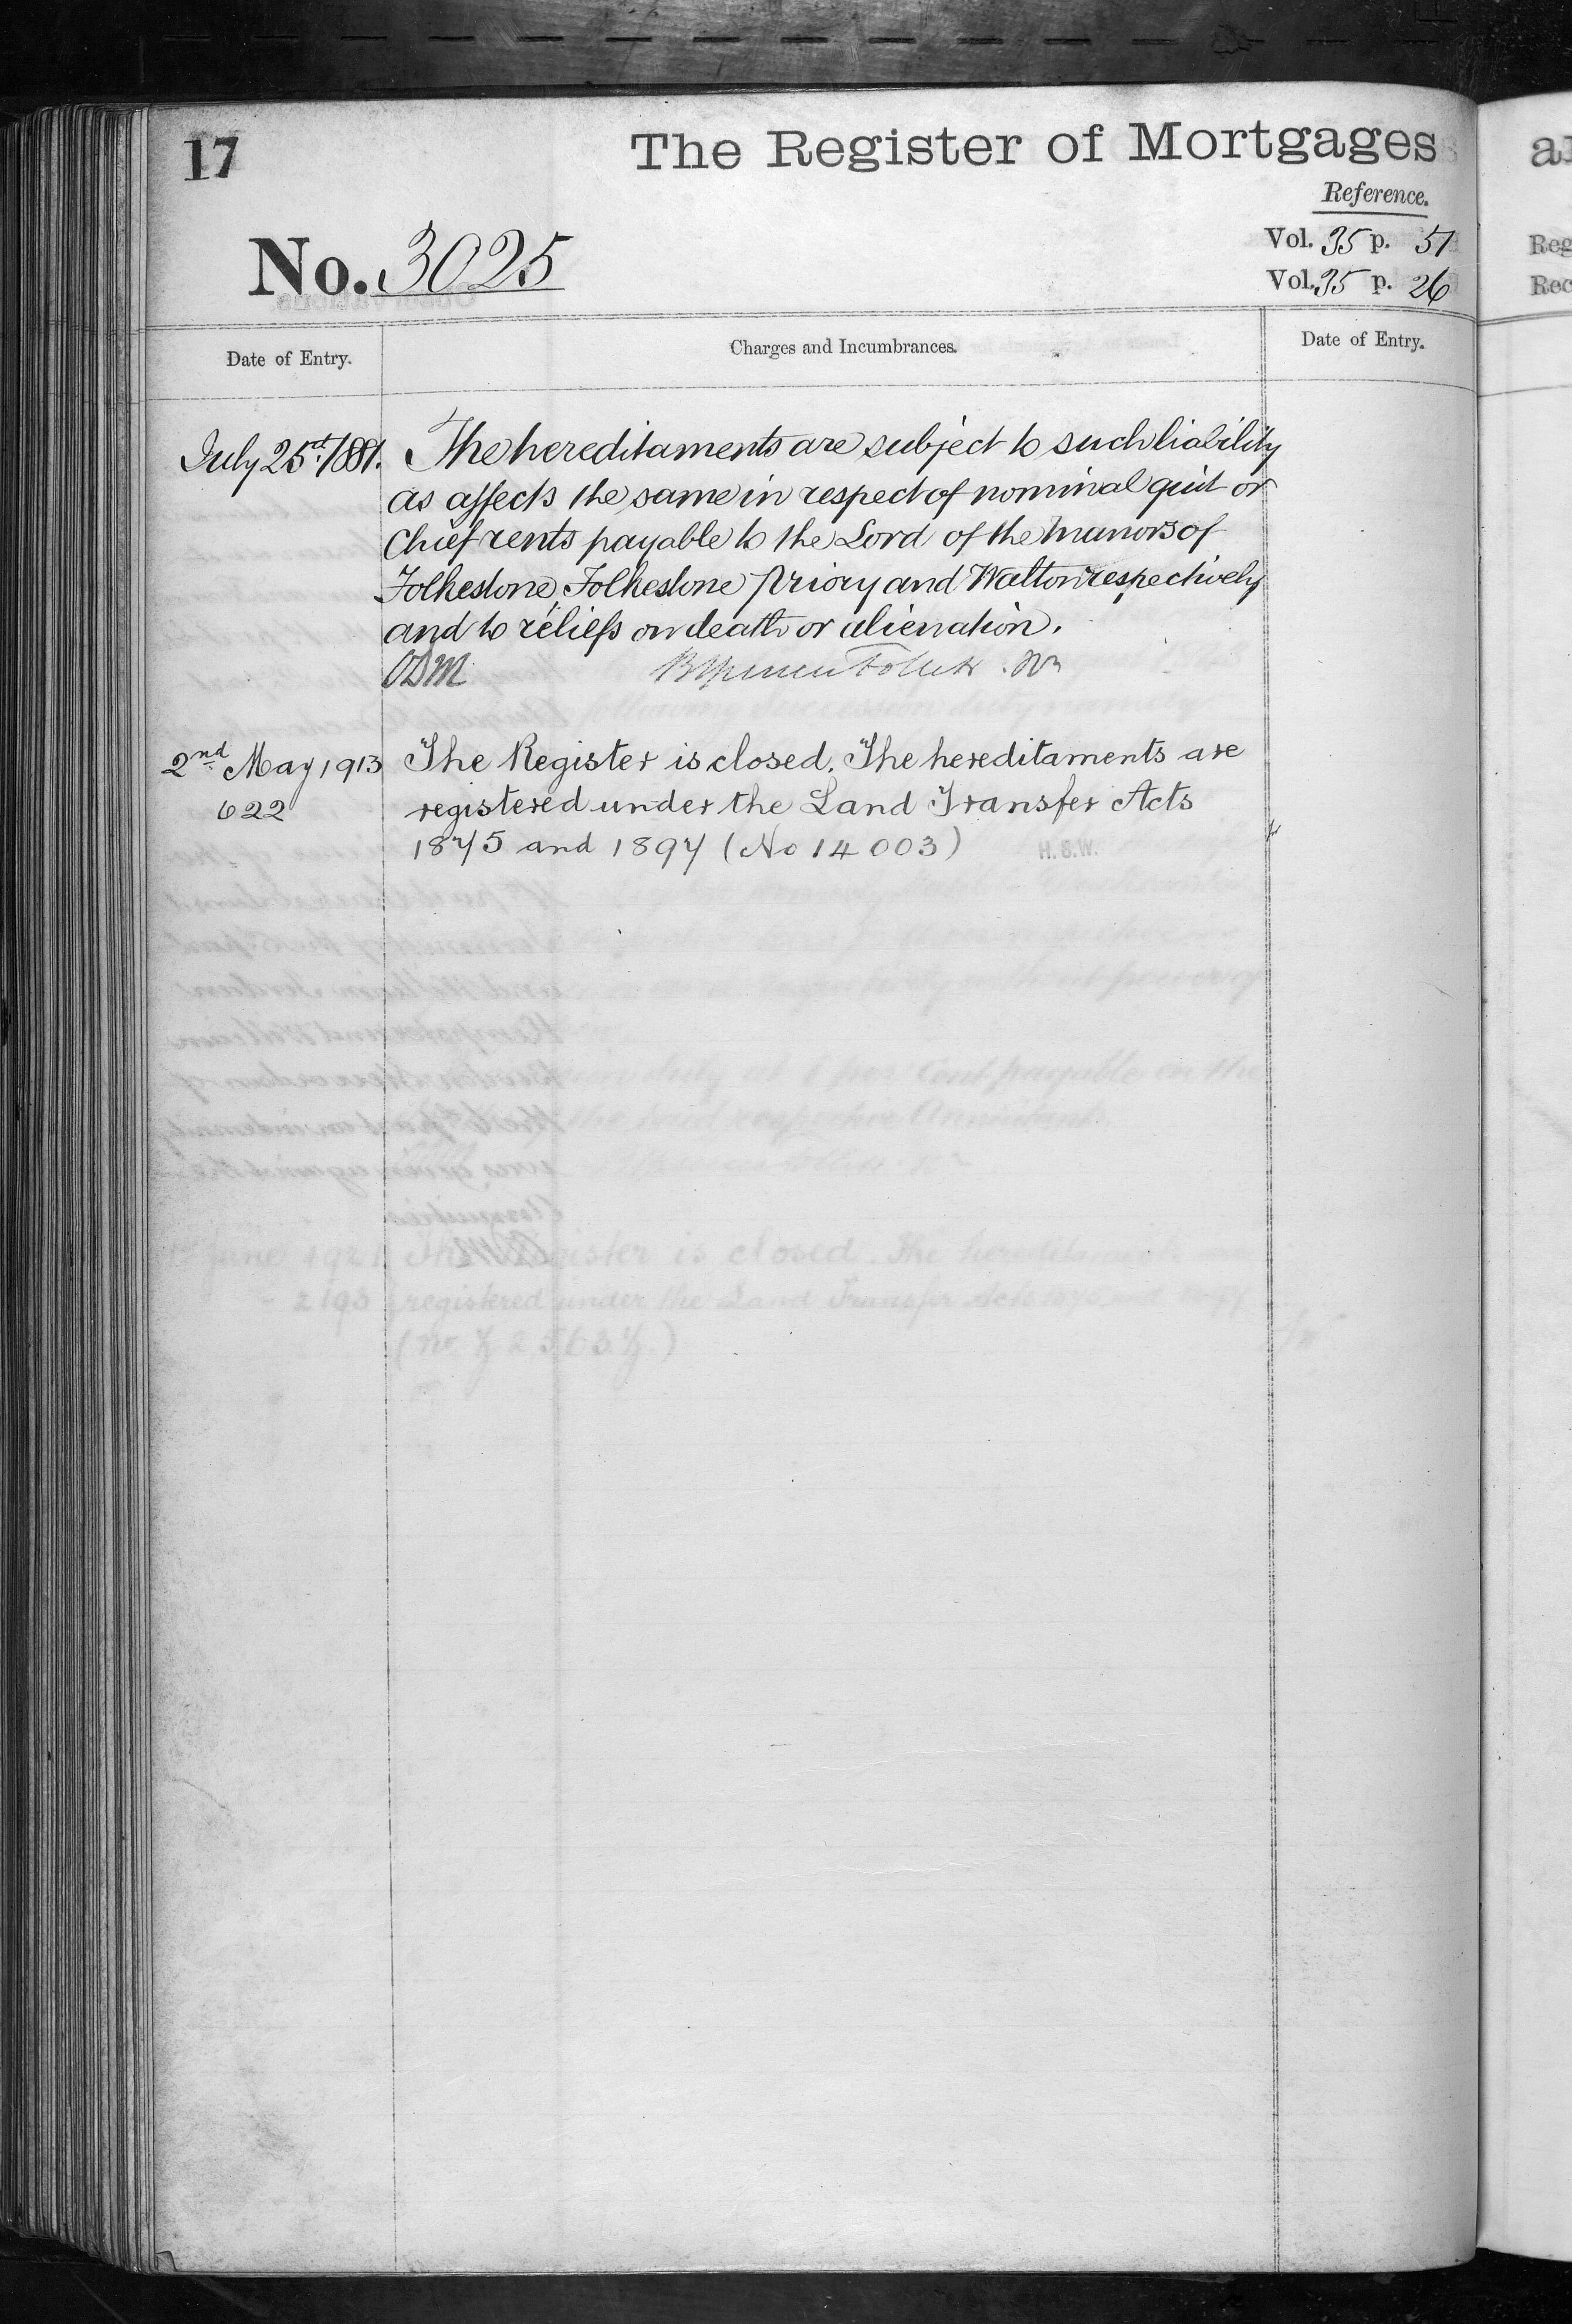 17
The Register of Mortgages
Reference.
Vol. 35 p. 51
Vol. 35 p. 26
No. 3025
Date of Entry.
Charges and Incumbrances.
Date of Entry.
July 25rd 1881. The hereditaments are subject to such liability
as affects the same in respect of nominal quit or
Chief rents payable to the Lord of the Manors of
Folkestone, Folkestone Priory and Walton respectively
and to reliefs on death or alienation.
ODM
2nd May 1913 The Register is closed. The hereditaments are
622 registered under the Land Transfer Acts
1875 and 1897 (No 14003) H.S.W.
Reg
Rec